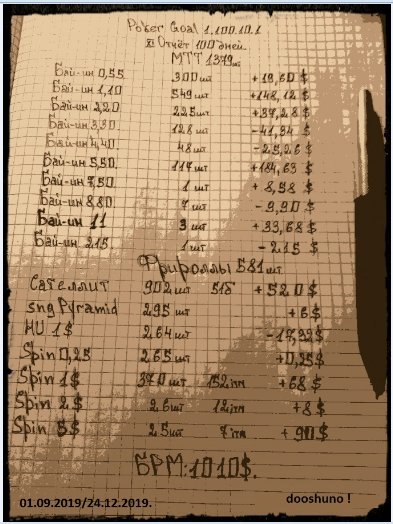 Poker Goal 1.100.10.1
XI Отчёт 100 дней.
МТТ 1379шт
Бай-ин 0,55 300шт +19,60$
Бай-ин 1,10 549шт +148,12$
Бай-ин 2,20 225шт +37,28$
Бай-ин 3,30 128шт -41,34$
Бай-ин 4,40 48шт -25,26$
Бай-ин 5,50 117шт +184,63$
Бай-ин 7,50 1шт +8,58$
Бай-ин 8,80 7шт -9,90$
Бай-ин 11 3шт +33,68$
Бай-ин 215 1шт -215$
Фрироллы 581шт
Сателлит 902шт 518 +520$
sng Pyramid 295шт +6$
HU 1$ 264шт -17,32$
Spin 0,25 265шт +0,25$
Spin 1$ 370шт 152itm +68$
Spin 2$ 26шт 12itm +8$
Spin 5$ 25шт 7itm +90$
БРМ:1010$.
01.09.2019/24.12.2019.
dooshuno !